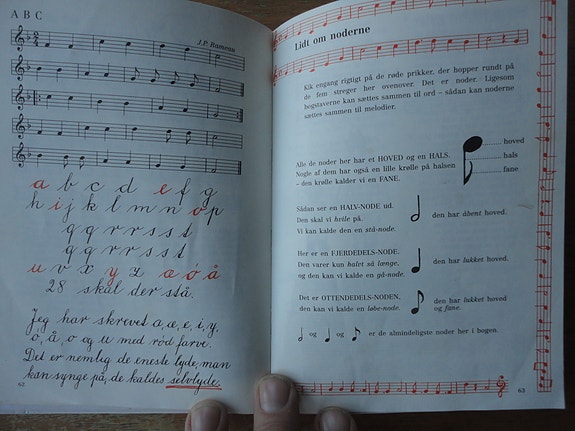 A B C
J.P. Rameau
a b c d e f g
h i j k l m n o p
q q r r s s t
q q r r s s t
u v x y z æ ø å
28 skal der stå.
Jeg har skrevet a, æ, e, i, y,
ó, å, o og u med ród farve.
Det er nemlig de eneste lyde, man
kan synge på, de kaldes selvlyde.
62
Lidt om noderne
Kik engang rigtigt på de røde prikker, der hopper rundt på
de fem streger her ovenover. Det er noder. Ligesom
bogstaverne kan sættes sammen til ord – sådan kan noderne
sættes sammen til melodier.
Alle de noder her har et HOVED og en HALS.
Nogle af dem har også en lille krølle på halsen
– den krølle kalder vi en FANE.
hoved
hals
fane
Sådan ser en HALV-NODE ud.
Den skal vi hvile på.
Vi kan kalde den en stå-node.
den har åbent hoved.
Her er en FJERDEDELS-NODE.
Den varer kun halvt så længe,
og den kan vi kalde en gå-node.
den har lukket hoved.
Det er OTTENDEDELS-NODEN,
den kan vi kalde en løbe-node.
den har lukket hoved
og fane.
og og er de almindeligste noder her i bogen.
63